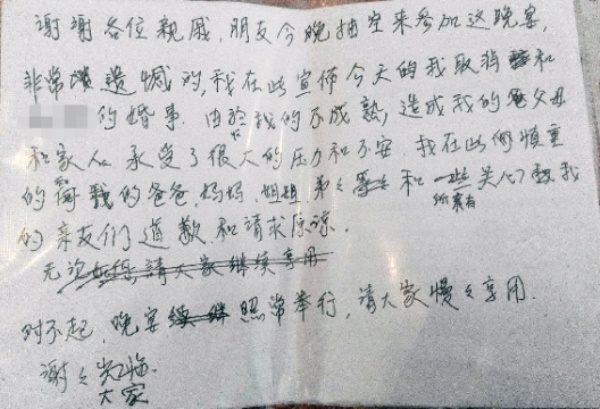 谢谢各位親戚,朋友今晚抽空来参加这晚宴,
非常遗憾的,我在此宣佈今天的我取消和
的婚事.由於我的不成熟,造成我的父母
和家人承受了很大的压力和不安.我在此慎重
的向我的爸爸,妈妈,姐姐,弟々和一些关心我
所有
的亲友们道歉和請求原諒.
請大家继续享用
对不起,晚宴照常举行,請大家慢々享用.
谢々光临.
大家